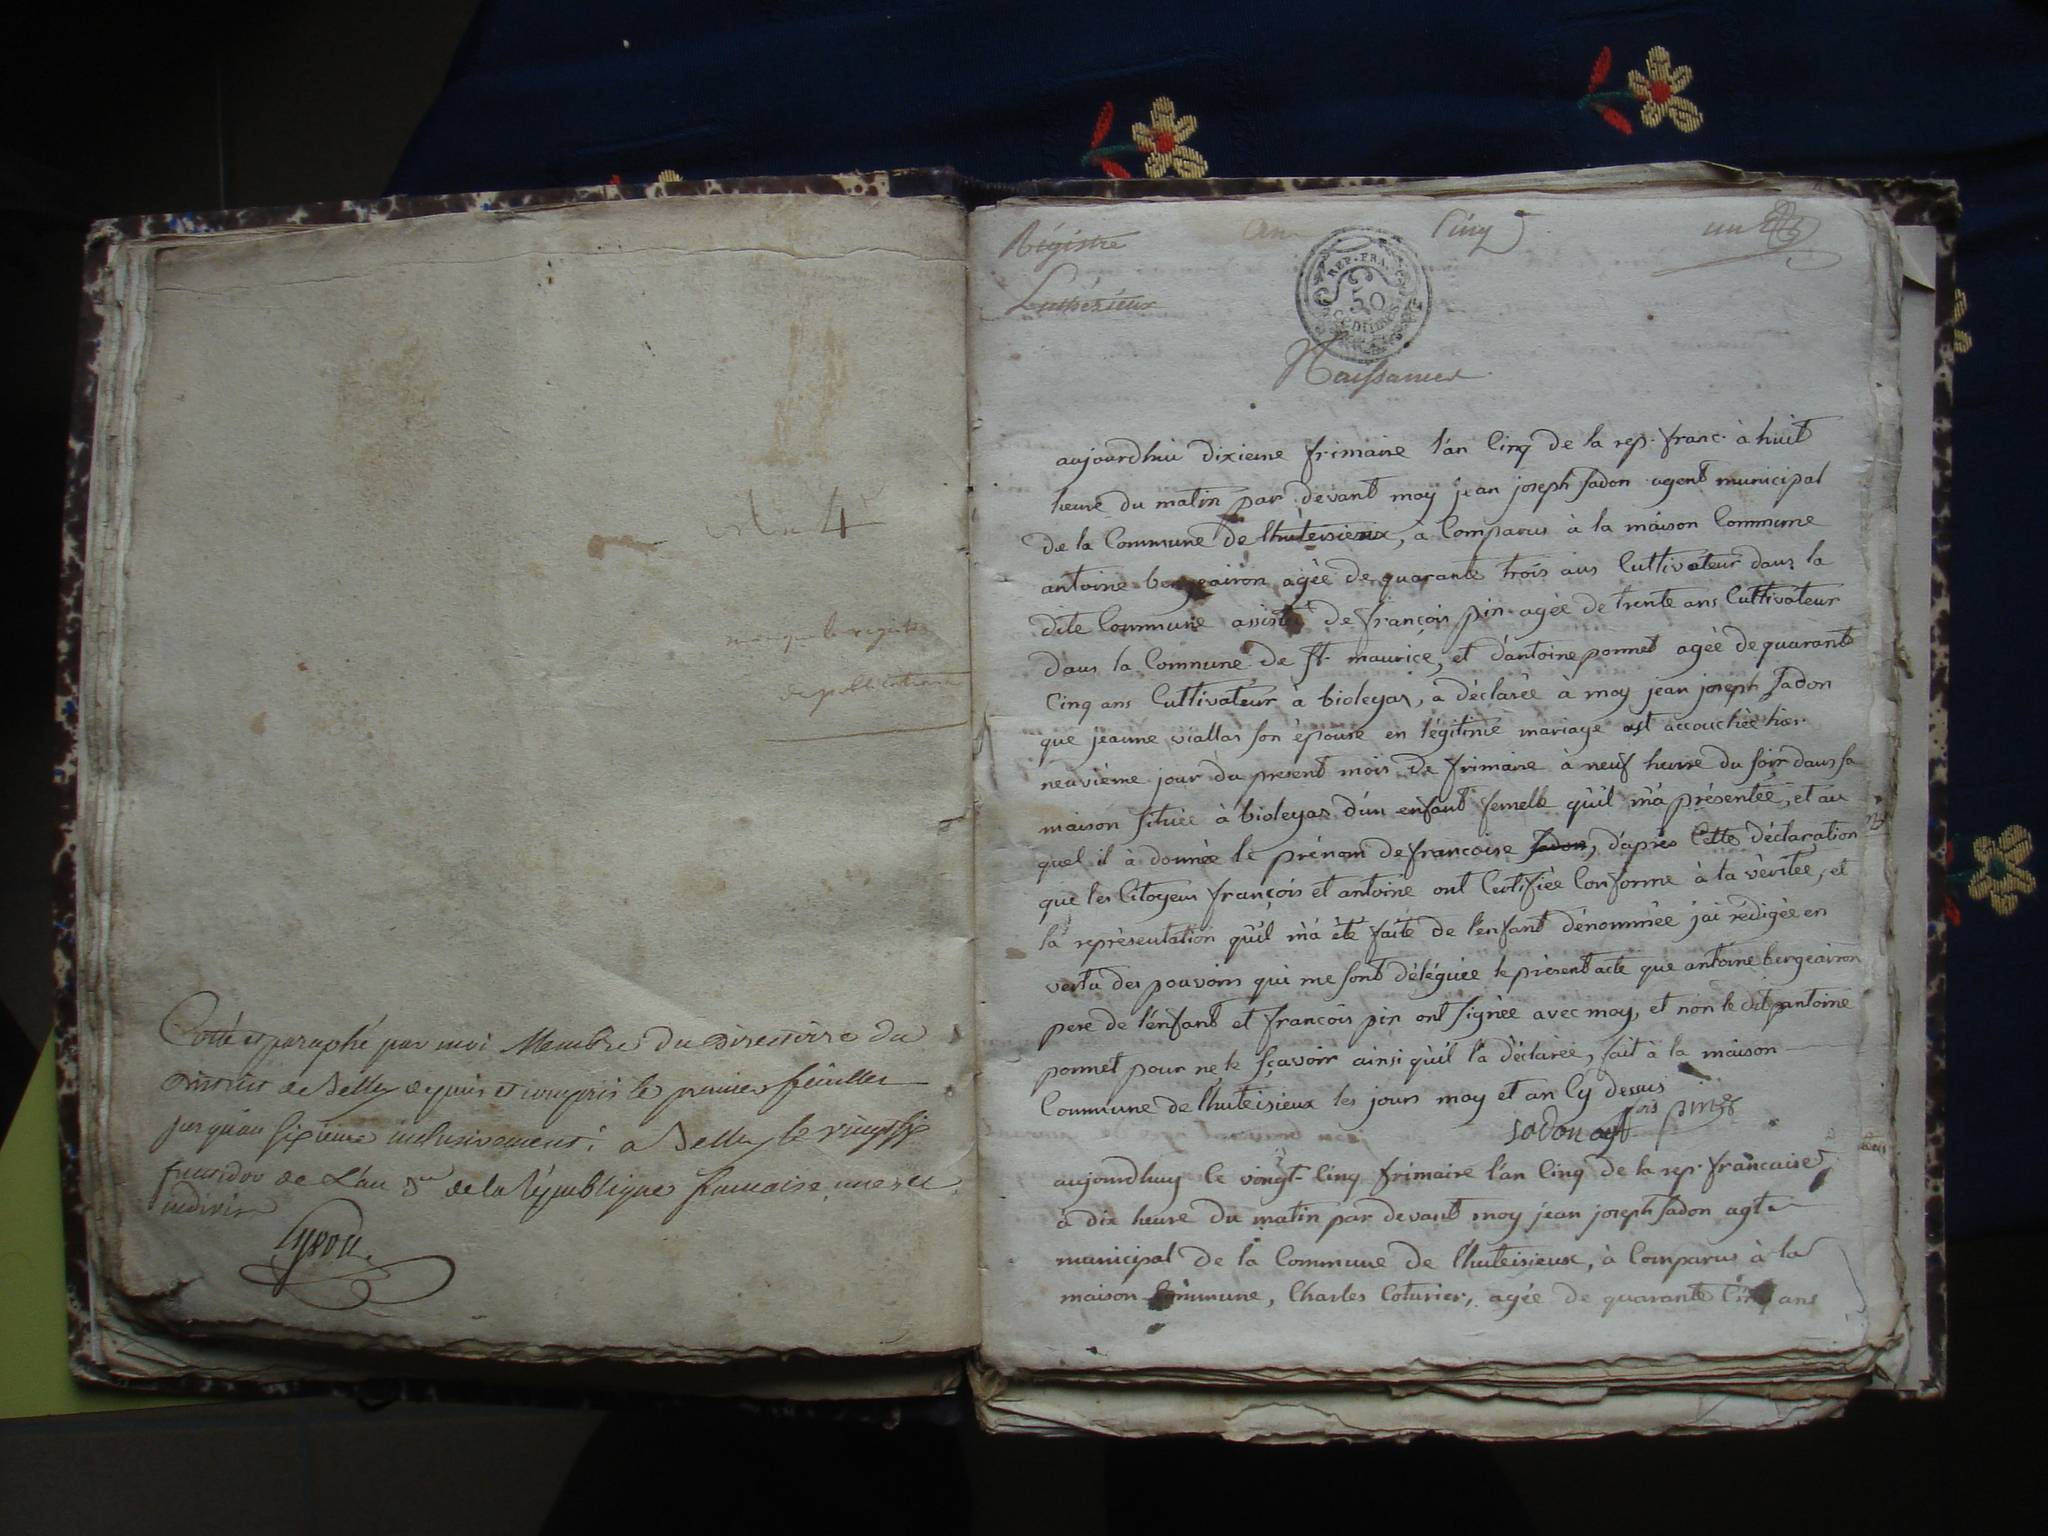 4
manque le registre
de publications
Cotté et paraphé par moi Membre du Directoire du
District de Belley depuis et compris le premier feuillet
jusqu'au sixieme inclusivement. a Belley le vingt six
fructidor de L'an 3me de la République francaise une et
indivis
Régistre an Cinq un
Luthézieux
REP. FRA.
50
CENTIMES
Naissances
aujourdhui dixieme frimaire l'an Cinq de la rep. franc. à huit
heure du matin par devant moy jean joseph Jadon agent municipal
de la Commune de lhuteisieux, à Comparus à la maison Commune
antoine bergeairon agèe de quarante trois ans Cultivateur dans la
dite Commune assisté de françois pin agèe de trente ans Cultivateur
dans la Commune de St. maurice, et d'antoine ponnet agèe de quarant
Cinq ans Cultivateur à bioleyas, a dèclarèe à moy jean joseph Jadon
que jeanne viallas son èpouse en lègitime mariage est accouchèe hier
neuvième jour du present mois de frimaire à neuf heure du soir dans sa
maison situèe à bioleyas d'un enfant femelle qu'il m'a prèsentèe, et au
quel il à donnèe le prènom de francoise Jadon, d'après Cette dèclaration
que les Citoyens françois et antoine ont Certifièe Conforme à la vèritèe, et
la reprèsentation qu'il m'à ètè faite de l'enfant dènommèe j'ai rèdigèe en
vertu des pouvoirs qui me sont dèlèguèe le prèsent acte que antoine bergeairon
pere de l'enfant et francois pin ont signèe avec moy, et non le dit antoine
ponnet pour ne le sçavoir ainsi qu'il l'a dèclarèe, fait à la maison
Commune de lhuteisieux les jours moy et an Cy dessus
jadon agt fois pin
aujourdhuy le vingt-Cinq frimaire l'an Cinq de la rep. francaise
à dix heure du matin par devant moy jean joseph Jadon agt
municipal de la Commune de lhuteisieux, à Comparus à la
maison Commune, Charles Coturier, agèe de quarante Cinq ans